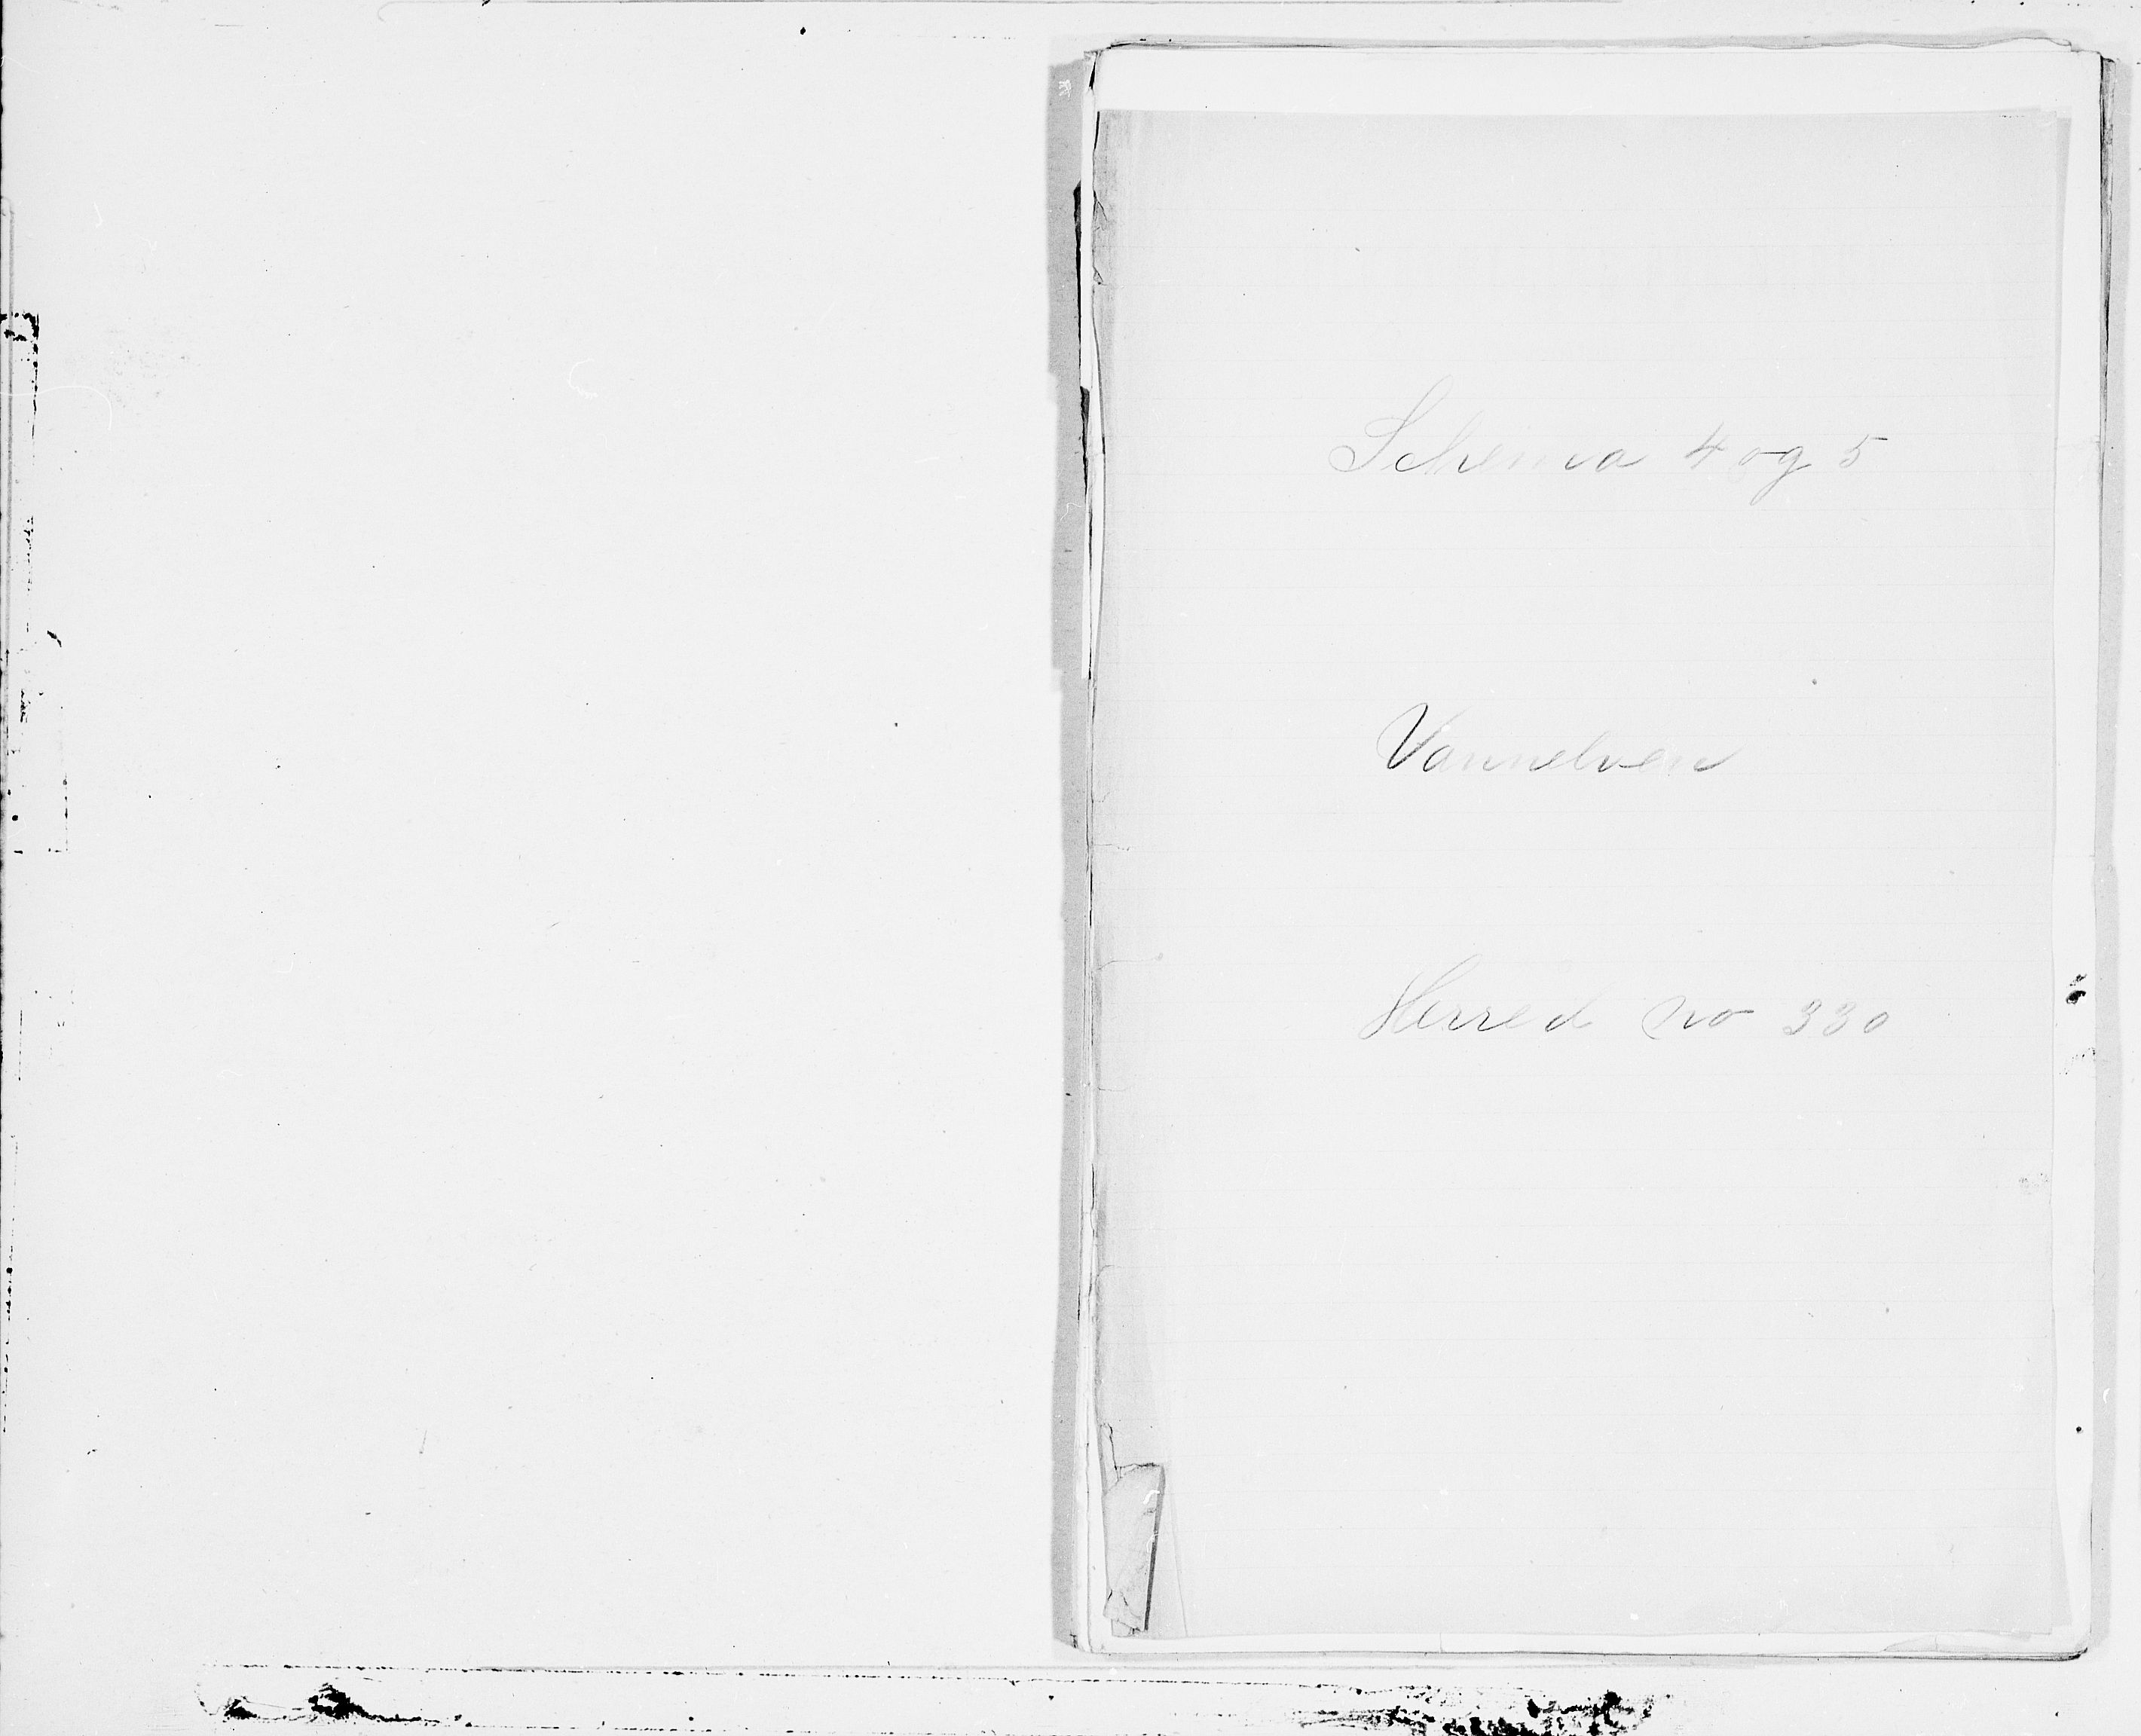 Schema 4 og 5
Vannelven
Herred no 330